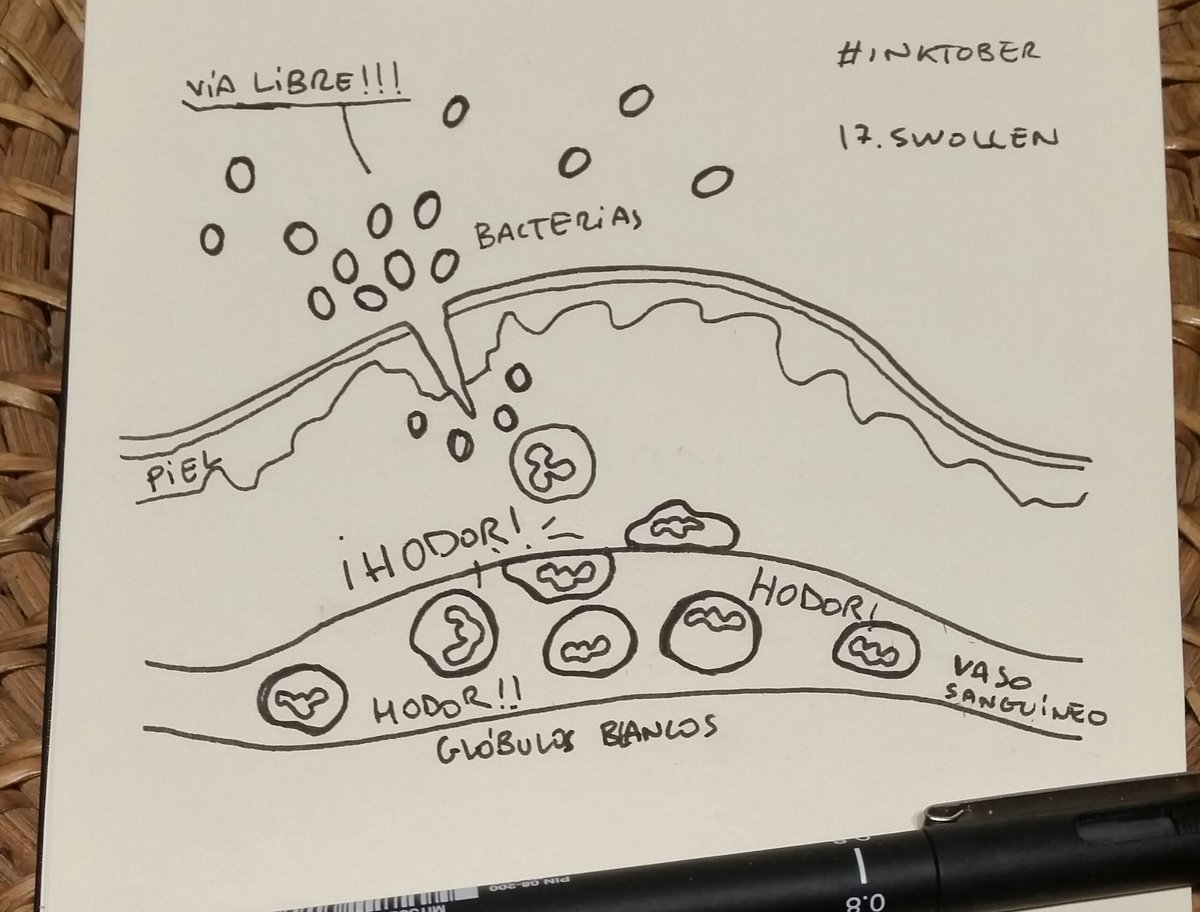 #INKTOBER
17. SWOLLEN
VÍA LIBRE!!!
BACTERIAS
PIEL
¡HODOR!
HODOR!
HODOR!!
VASO
SANGUÍNEO
GLÓBULOS BLANCOS
PIN 08-200
0.8